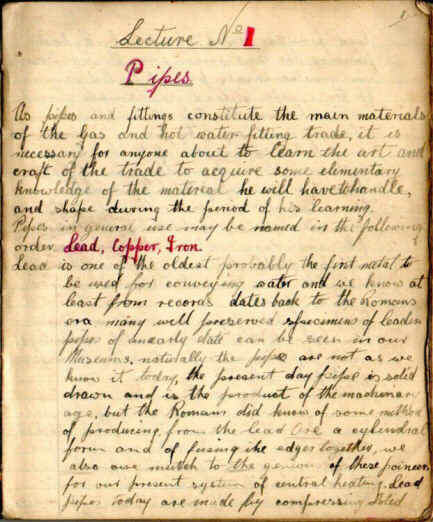 Lecture No 1
Pipes.
As pipes and fittings constitute the main materials
of the Gas and hot water fitting trade, it is
necessary for anyone about to learn the art and
craft of the trade to acquire some elementary
knowledge of the material he will have to handle,
and shape during the period of his learning.
Pipes in general use may be named in the following
order Lead, Copper, Iron.
Lead is one of the oldest probably the first metal to
be used for conveying water and we know at
least from records dates back to the Romans
era many well preserved specimens of leaden
pipes of an early date can be seen in our
Museums, naturally the pipes are not as we
know it today, the present day pipe is solid
drawn and is the product of the machinery
age, but the Romans did know of some method
of producing from the lead ore a cylindral
form and of fusing the edges together, we
also owe mutch to the genius of these poineers
for our present system of central heating. Lead
pipes today are made by compressing